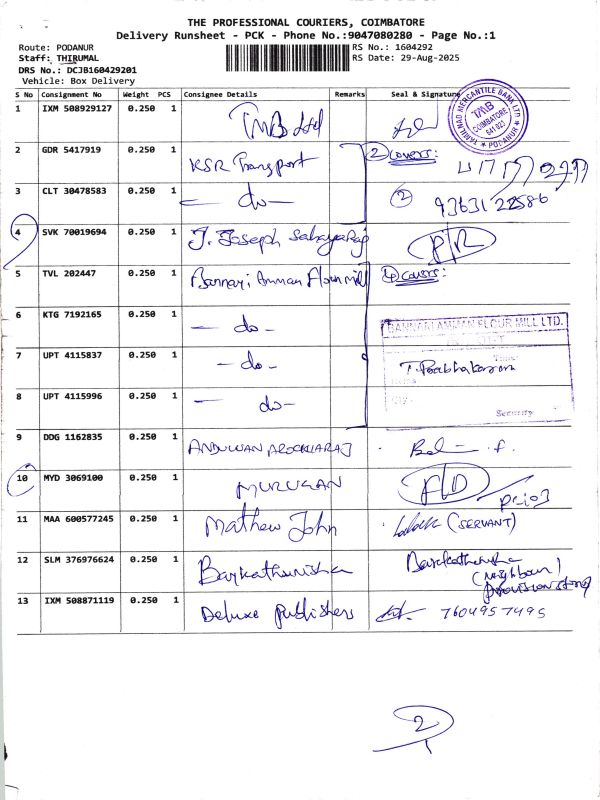 THE PROFESSIONAL COURIERS, COIMBATORE
Delivery Runsheet - PCK - Phone No.:9047080280 - Page No.:1
Route: PODANUR
RS No.: 1604292
Staff: THIRUMAL
RS Date: 29-Aug-2025
DRS No.: DCJB160429201
Vehicle: Box Delivery
S No Consignment No Weight PCS Consignee Details Remarks Seal & Signature
1 IXM 508929127 0.250 1 TMB Ltd
TAMILNAD MERCANTILE BANK LTD
TMB
COIMBATORE
641 023
PODANUR
2 GDR 5417919 0.250 1 KSR Transport 2 covers:
3 CLT 30478583 0.250 1 — do — 2 9363122586
4 SVK 70019694 0.250 1 J. Joseph Sahayaraj
5 TVL 202447 0.250 1 Bannari Amman Flour Mill 4 covers:
6 KTG 7192165 0.250 1 — do -
BANNARI AMMAN FLOUR MILL LTD.
7 UPT 4115837 0.250 1 — do -
T. Prabhakaran
Time
8 UPT 4115996 0.250 1 — do-
Security
9 DDG 1162835 0.250 1 AROCKIARAJ
10 MYD 3069100 0.250 1 MURUGAN
11 MAA 600577245 0.250 1 Mathew John (SERVANT)
12 SLM 376976624 0.250 1 Barkathunisha
(Neighbour)
provision store
13 IXM 508871119 0.250 1 Deluxe Publishers 7604957495
2